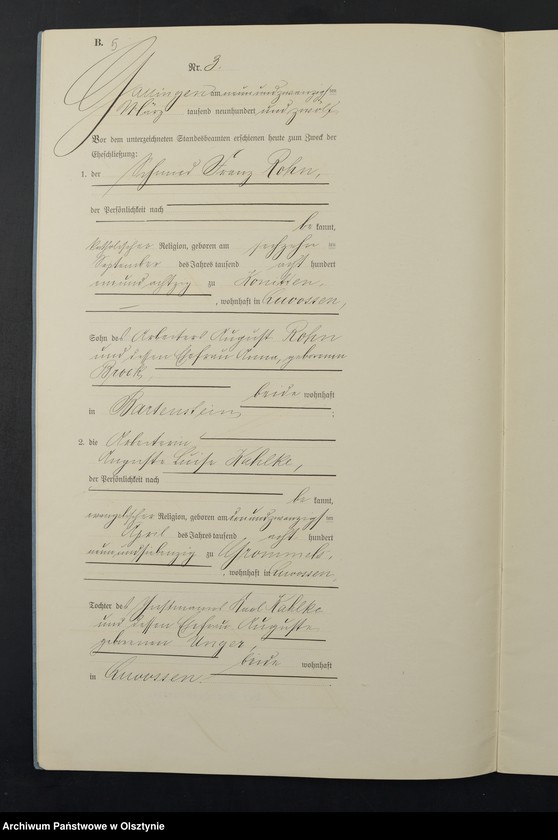 B. 5
Nr. 3.
Gallingen am neunundzwanzigsten
März tausend neunhundert und zwölf
Vor dem unterzeichneten Standesbeamten erschienen heute zum Zweck der
Eheschließung:
1. der Franz Rohn,
der Persönlichkeit nach
be kannt,
katholischer Religion, geboren am sechzehnten
September des Jahres tausend acht hundert
neunundachtzig zu
, wohnhaft in
Sohn des Arbeiters August Rohn
und dessen Ehefrau Anna, geborenen
beide wohnhaft
in Bartenstein ;
2. die Arbeiterin,
Auguste Luise Kahlke,
der Persönlichkeit nach
be kannt,
evangelischer Religion, geboren am
April des Jahres tausend acht hundert
neunundsiebenzig zu Grommels,
, wohnhaft in
Tochter des Karl Kahlke
und dessen Ehefrau Auguste
geborenen Unger,
beide wohnhaft
in
Archiwum Państwowe w Olsztynie